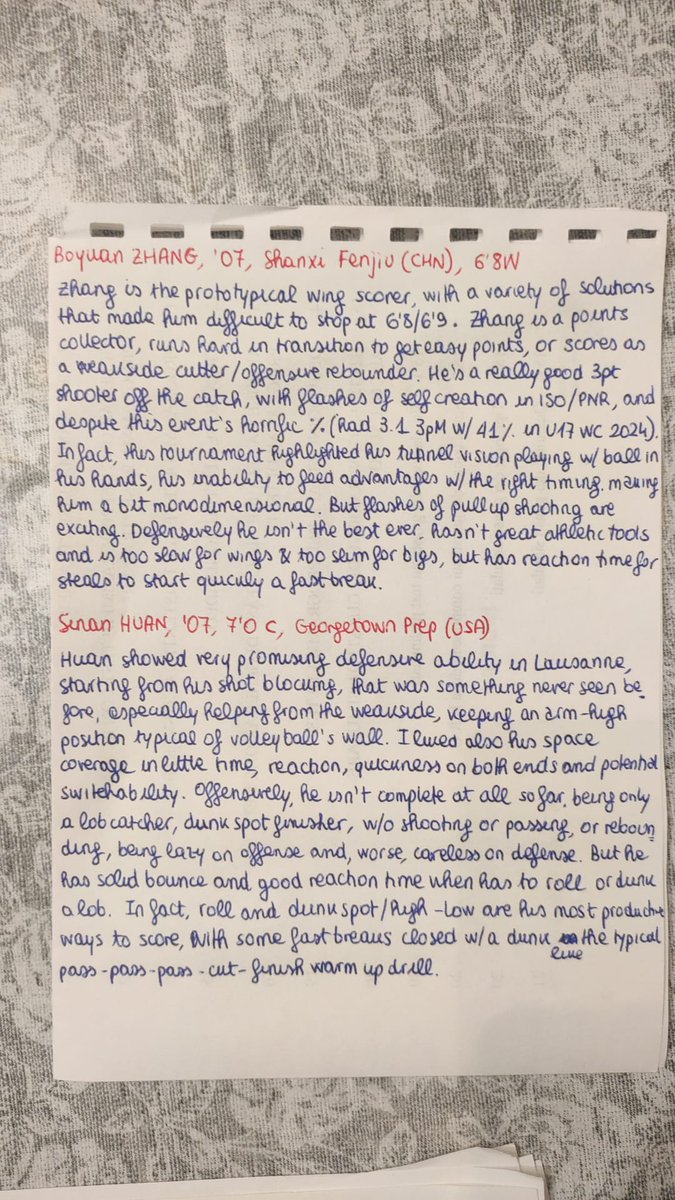 Boyuan ZHANG, '07, Shanxi Fenjiu (CHN), 6'8W
Zhang is the prototypical wing scorer, with a variety of solutions
that made him difficult to stop at 6'8/6'9. Zhang is a points
collector, runs hard in transition to get easy points, or scores as
a weakside cutter/offensive rebounder. He's a really good 3pt
shooter off the catch, with flashes of self creation in ISO/PNR, and
despite this event's horrific % (had 3.1 3PM w/ 41% in U17 WC 2024).
In fact, this tournament highlighted his tunnel vision playing w/ ball in
his hands, his inability to feed advantages w/ the right timing, making
him a bit monodimensional. But flashes of pull up shooting are
exciting. Defensively he isn't the best ever, hasn't great athletic tools
and is too slow for wings & too slim for bigs, but has reaction time for
steals to start quickly a fastbreak.
Sinan HUAN, '07, 7'0 C, Georgetown Prep (USA)
Huan showed very promising defensive ability in Lausanne,
starting from his shot blocking, that was something never seen be
fore, especially helping from the weakside, keeping an arm-high
position typical of volleyball's wall. I liked also his space
coverage in little time, reaction, quickness on both ends and potential
switchability. Offensively, he isn't complete at all so far, being only
a lob catcher, dunk spot finisher, w/o shooting or passing, or reboun
ding, being lazy on offense and, worse, careless on defense. But he
has solid bounce and good reaction time when has to roll or dunk
a lob. In fact, roll and dunk spot/high-low are his most productive
ways to score, with some fast breaks closed w/ a dunk like the typical
pass-pass-pass-cut-finish warm up drill.